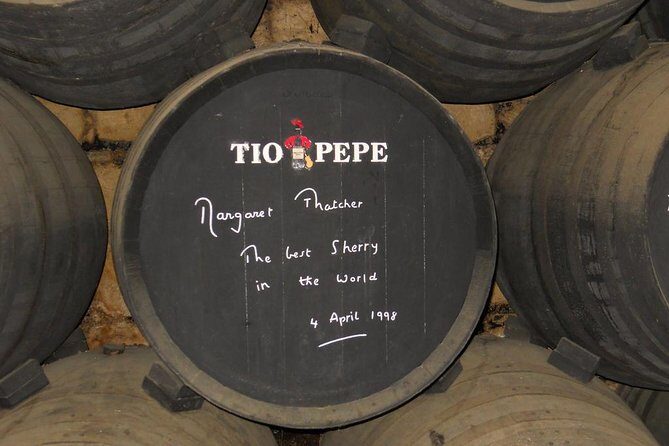 TIO PEPE
Margaret Thatcher
The best Sherry
in the World
4 April 1998